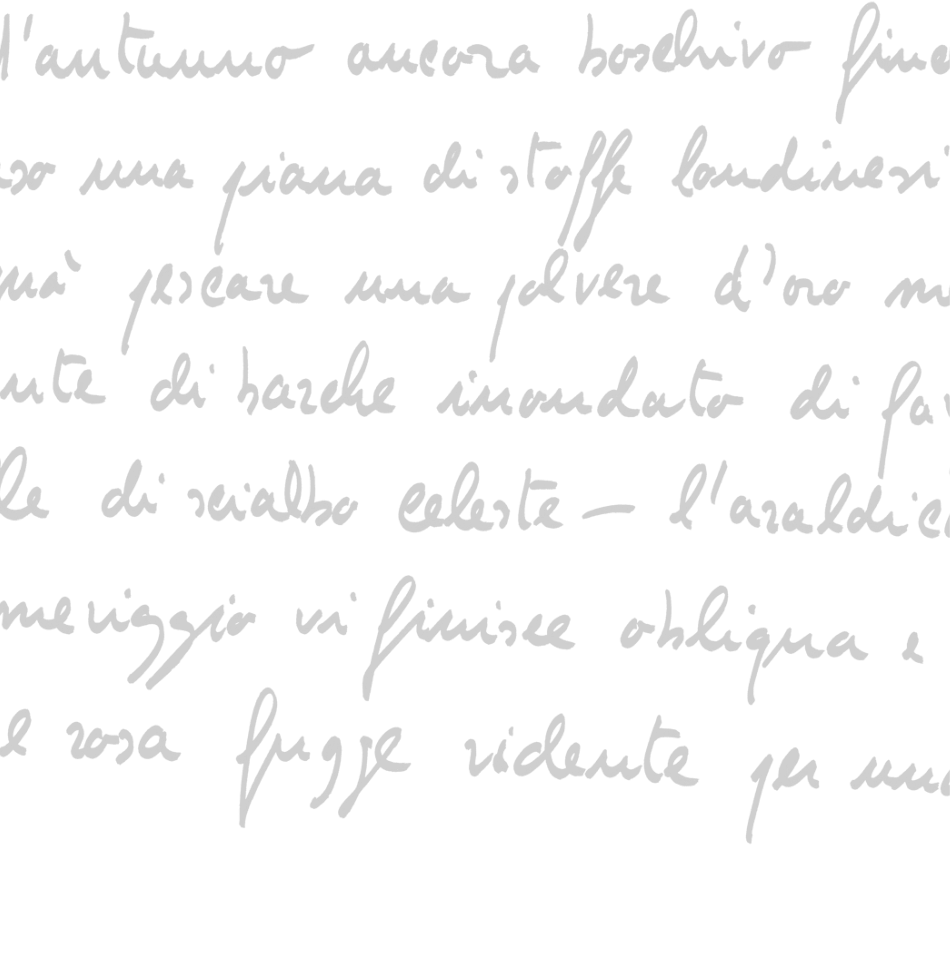 l'autunno ancora boschivo fine
so una piana di stoffe londinesi
pescare una polvere d'oro
nte di barche inondato di fav
lle di scialbo celeste — l'araldic
meriggio vi finisce obliqua e
e rosa fugge ridente per uno